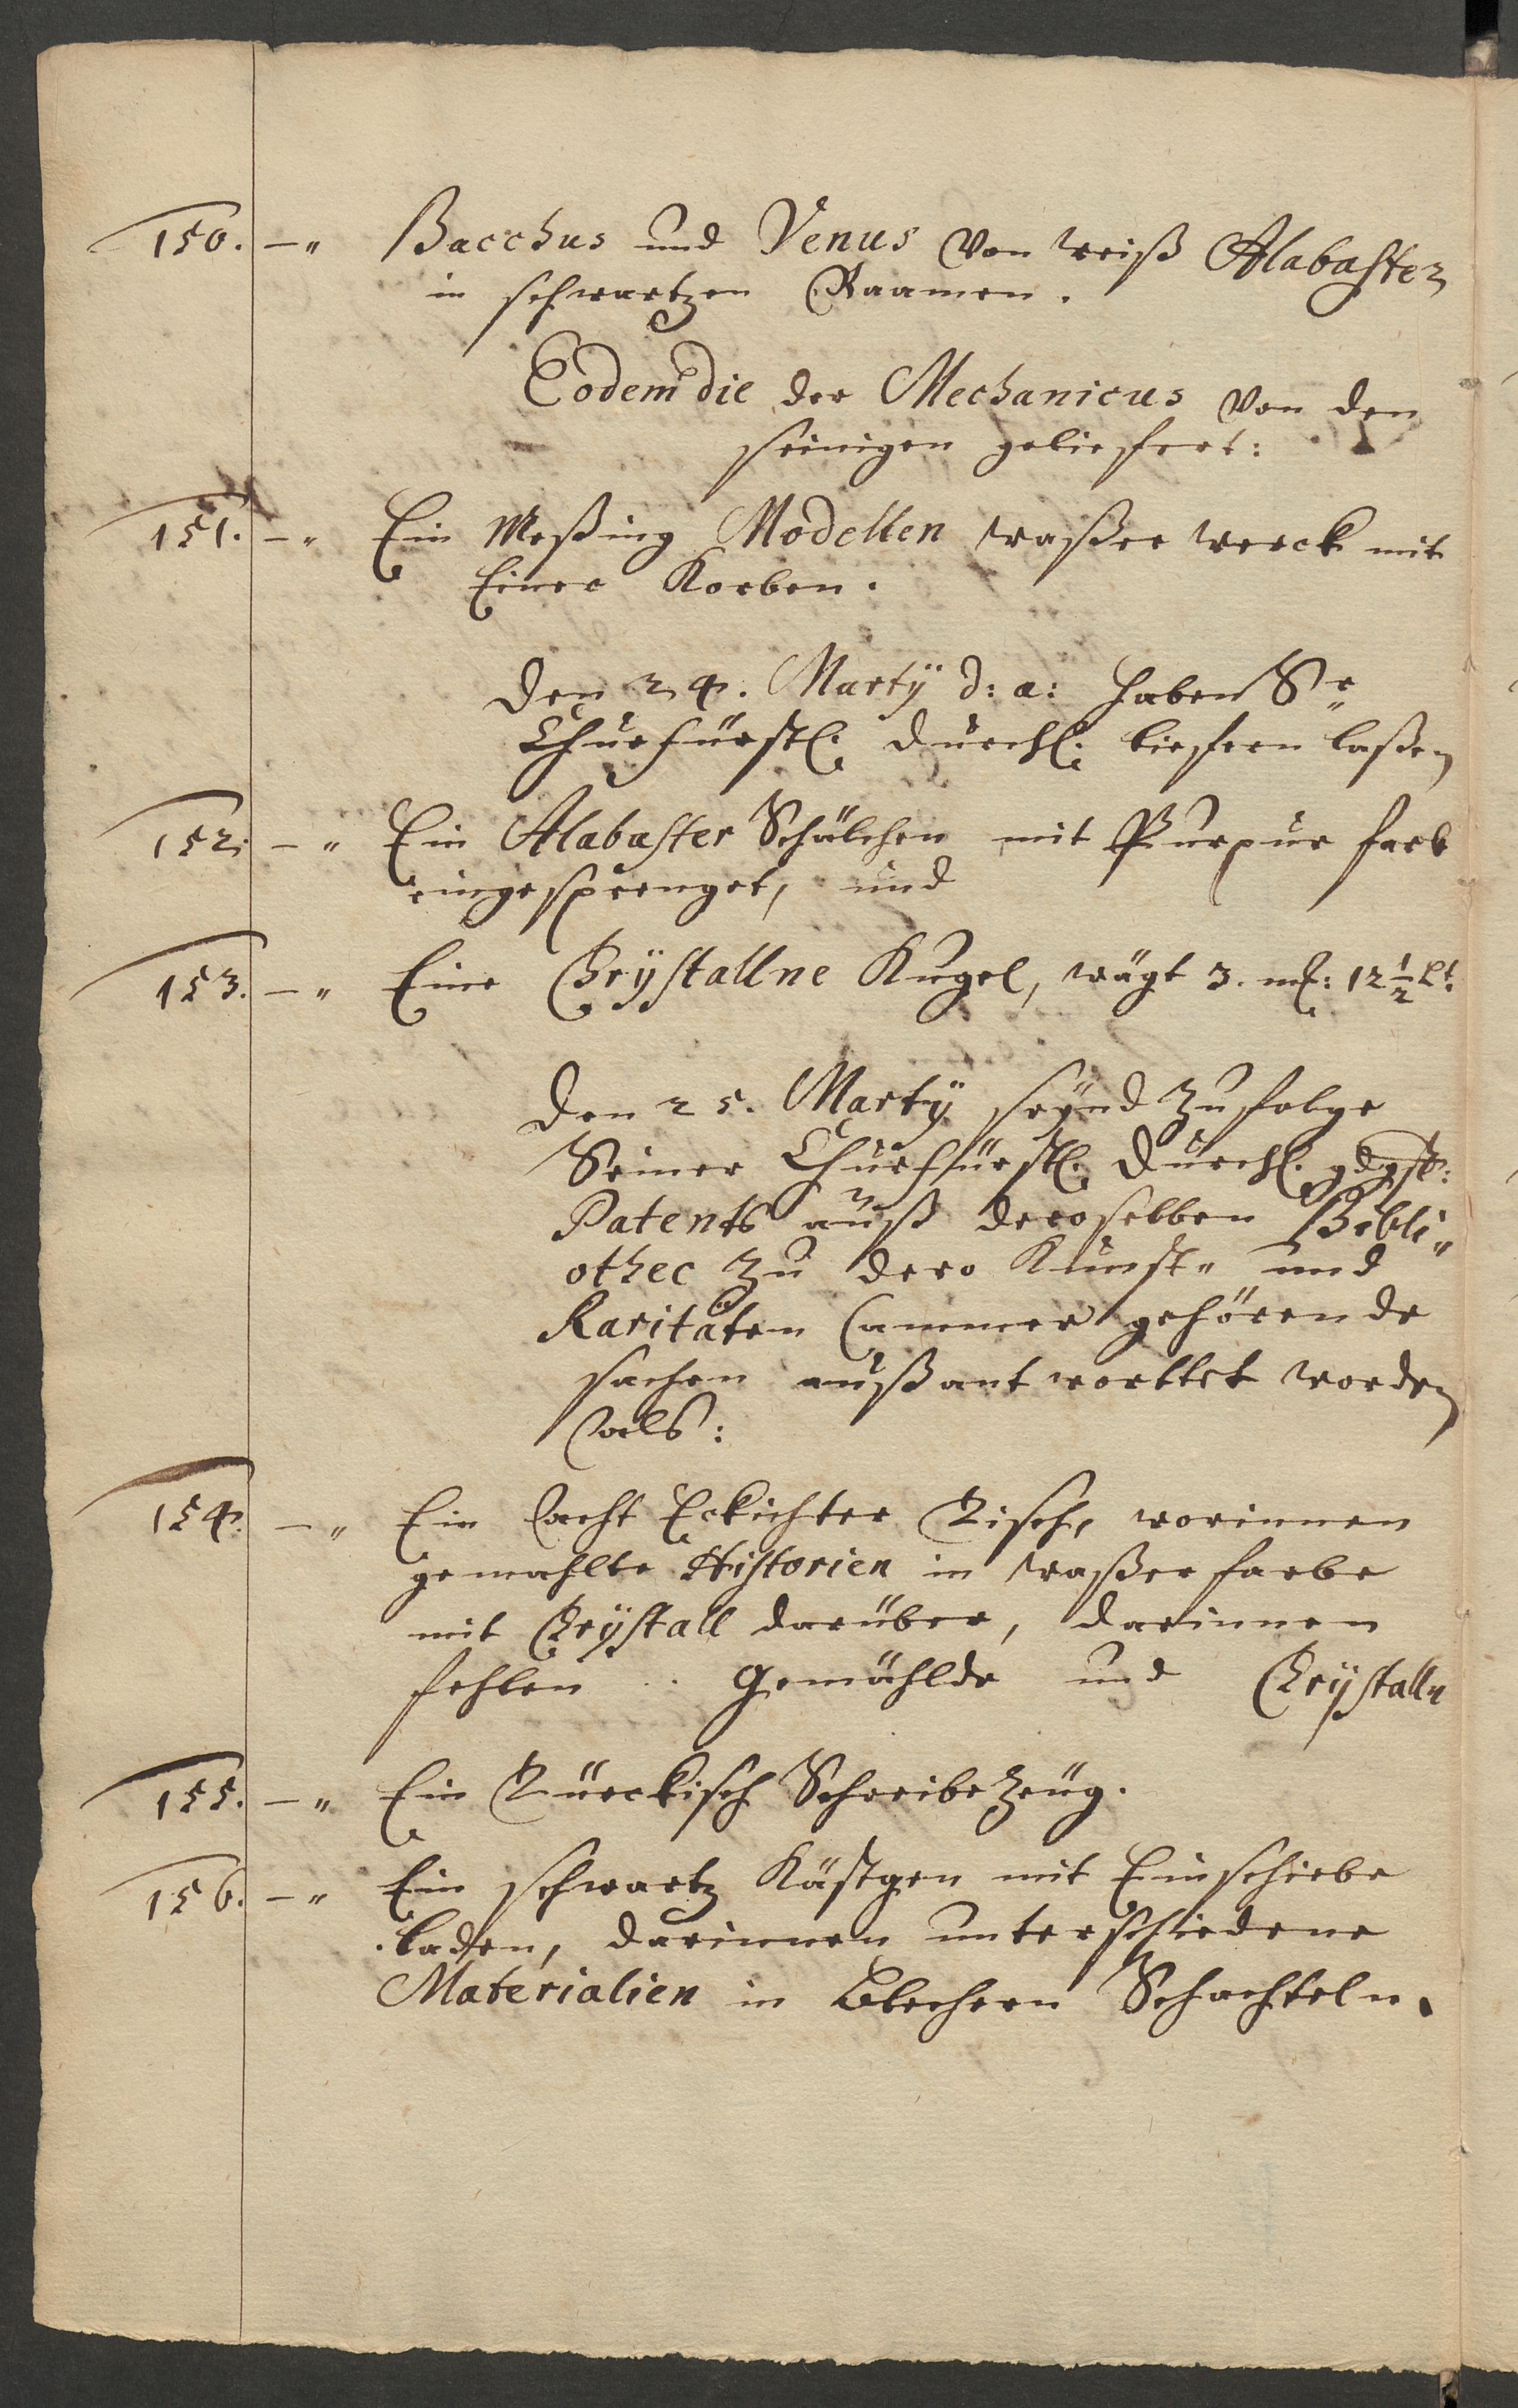 150. –„ Bacchus und Venus von weiß Alabaster
in schwartzen Raamen.
Eodem die der Mechanicus von den
seinigen geliefert:
151. –„ Ein Meßing Modellen waßer werck mit
Einer Korben.
Den 24. Martÿ d: a: haben Sr
Churfürstl: Durchl: liefern laßen
152. –„ Ein Alabaster Schälchen mit Purpur farb
eingesprenget, und
153. –„ Eine Crÿstallne Kugel, wägt 3. mk: 12 1/2 Lt:
Den 25. Martÿ seÿnd zu folge
Seiner Churfürstl: Durchl: gdgst:
Patents auß deroselben Bibli„
othec zu dero Kunst„ und
Raritäten Cammer gehörende
sachen außantworttet worden
als:
154. –„ Ein acht Eckichter Tisch, worinnen
gemahlte Historien in waßer farbe
mit Crÿstall darüber, darinnen
fehlen . . Gemählde und Crÿstalln
155. –„ Ein Türckisch Schreibe Zeüg.
156. –„ Ein schwartz Kästgen mit Einschiebe
laden, darinnen unterschiedene
Materialien in Blechern Schachteln.